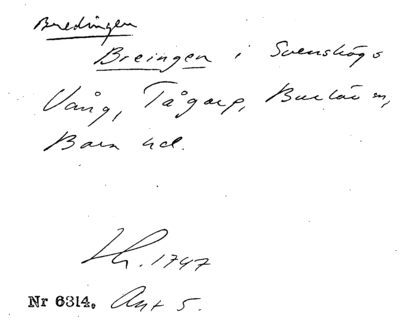 Bredingen
Breingen i Svenskögs
Vång, Tågarp, Burlöv sn,
Bara hd.
Lh. 1747
Nr 6314. Akt 5.